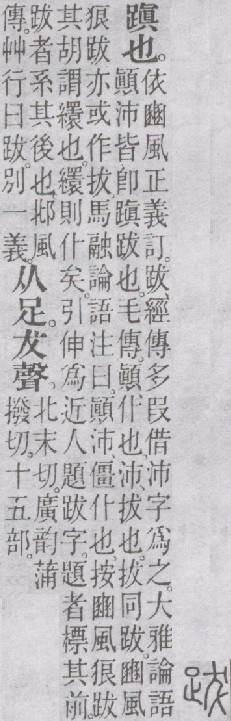 跋
蹎也。
依豳風正義訂。跋、經傳多叚借沛字爲之。大雅論語
顚沛皆卽蹎跋也。毛傳。顚、仆也。沛、拔也。拔同跋。豳風
狼跋亦或作拔。馬融論語注曰。顚沛、僵仆也。按豳風狼跋
其胡謂繯也。繯則仆矣。引伸爲近人題跋字。題者標其前。
跋者系其後也。邶風
傳。艸行曰跋。別一義。
从足。犮聲。
北末切。廣韵蒲
撥切。十五部。